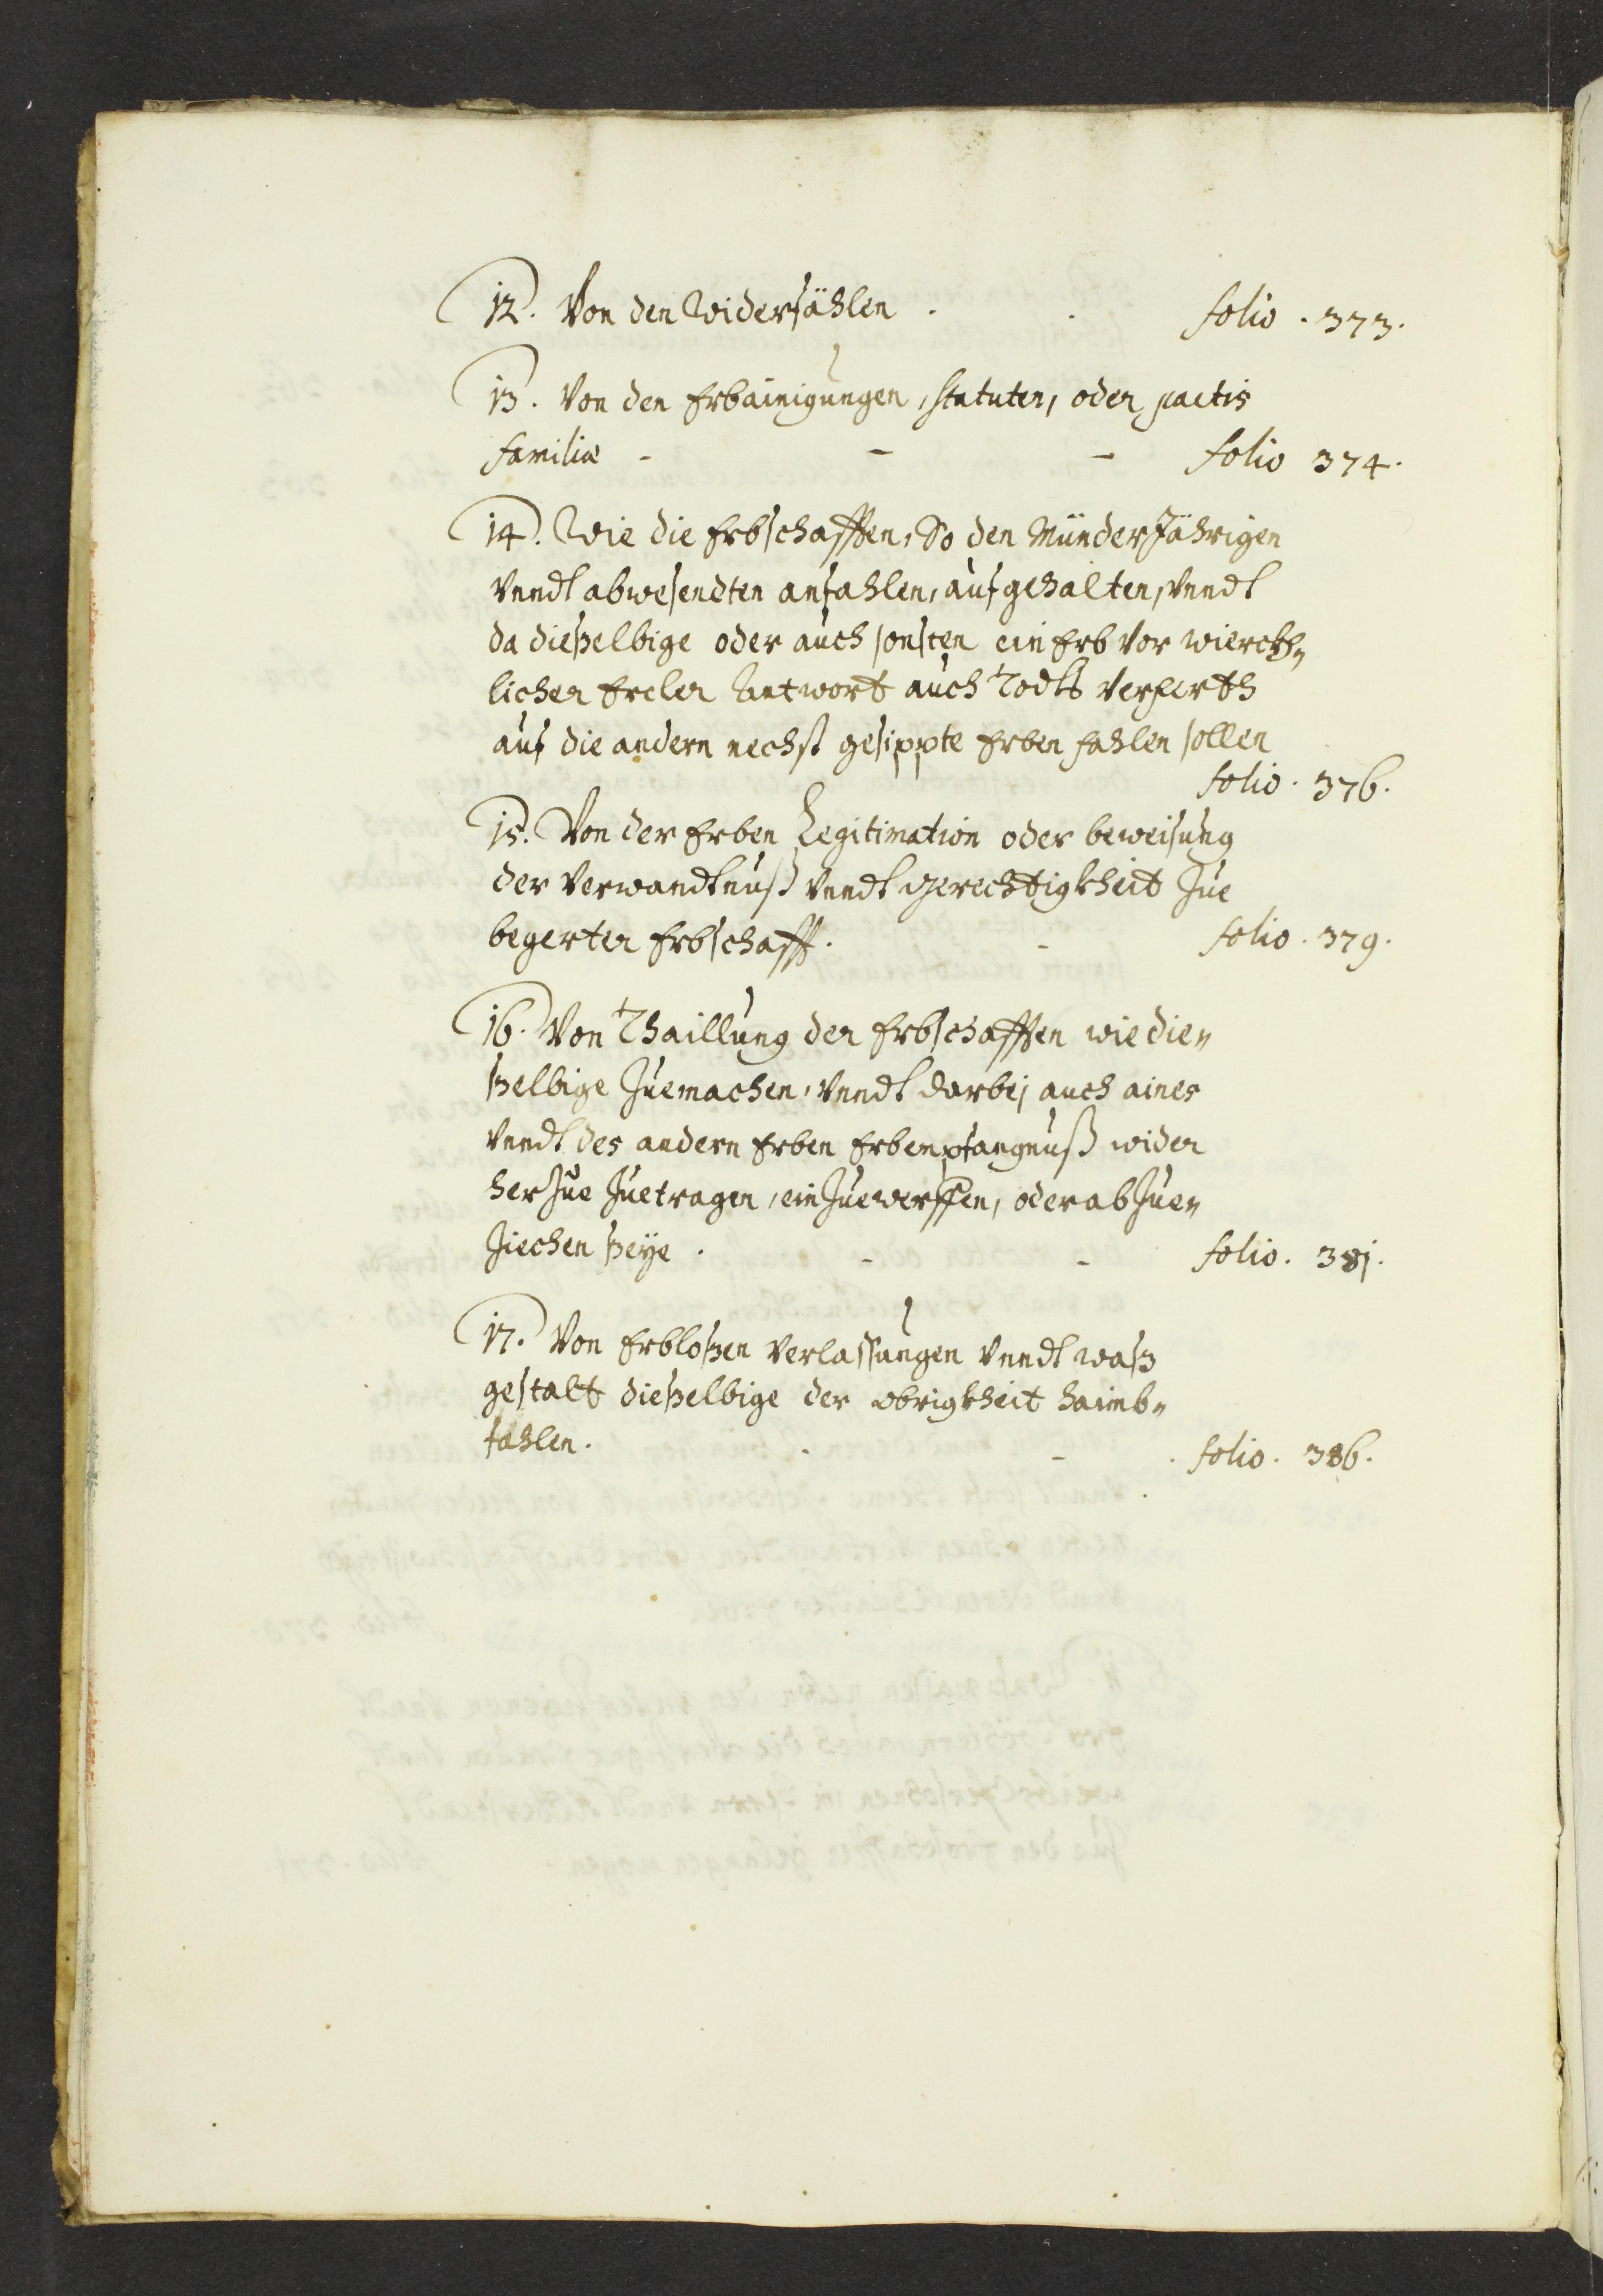 12. Von den Widerfählen . . folio . 373.
13. Von den Erbainigungen, statuten, oder pactis
familiæ - - - folio 374.
14. Wie die Erbschafften, So den Münder Jährigen
vnndt abwesendten anfahlen, aufgehalten, vnndt
da dießelbige oder auch sonsten ein Erb vor wierckh„
licher Antwort auch Todts verfierth
auf die andern nechst gesippte Erben fahlen sollen
folio . 376.
15. Von der Erben Legitimation oder beweisung
der verwandtnuß vnndt gerechtigkheit Zue
begerter Erbschafft. - folio . 379.
16. Von Thaillung der Erbschafften wie die„
ßelbige Zuemachen, vnndt darbej auch aines
vnndt des andern Erben Erbempfangnuß wider
herZue Zuetragen, ein Zuewerffen, oder ab Zue„
Ziechen ßeye . - - folio . 381.
17. Von Erbloßen verlassungen vnndt waß
gestalt dießelbige der obrigkheit haimb„
fahlen. . - . folio . 386.